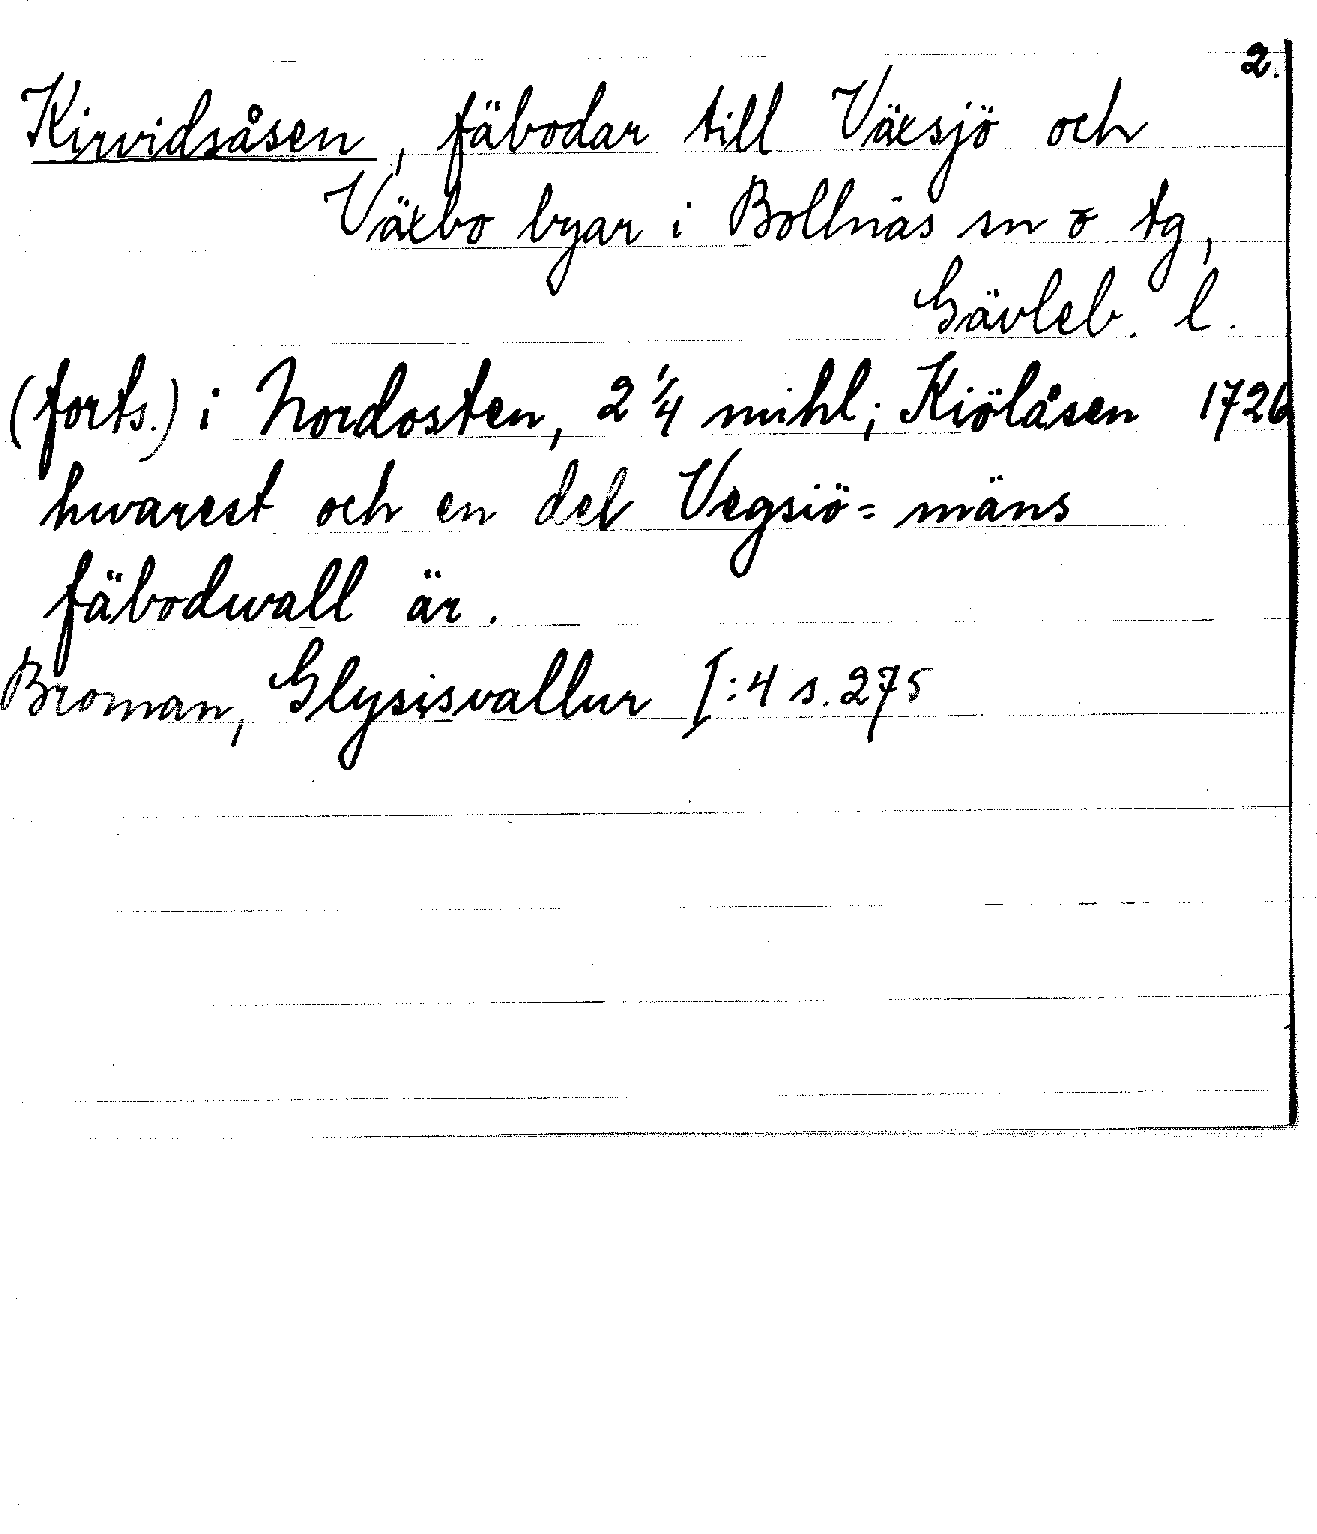 2.
Kirvidsåsen, fäbodar till Växsjö och
Växbo byar i Bollnäs sn o tg,
Gävleb. l.
(forts.) i Nordosten, 2 1/4 mihl; Kiölåsen 1726
hwarest och en del Vegsiö= mäns
fäbodwall är.
Broman, Glysisvallur I:4 s. 275